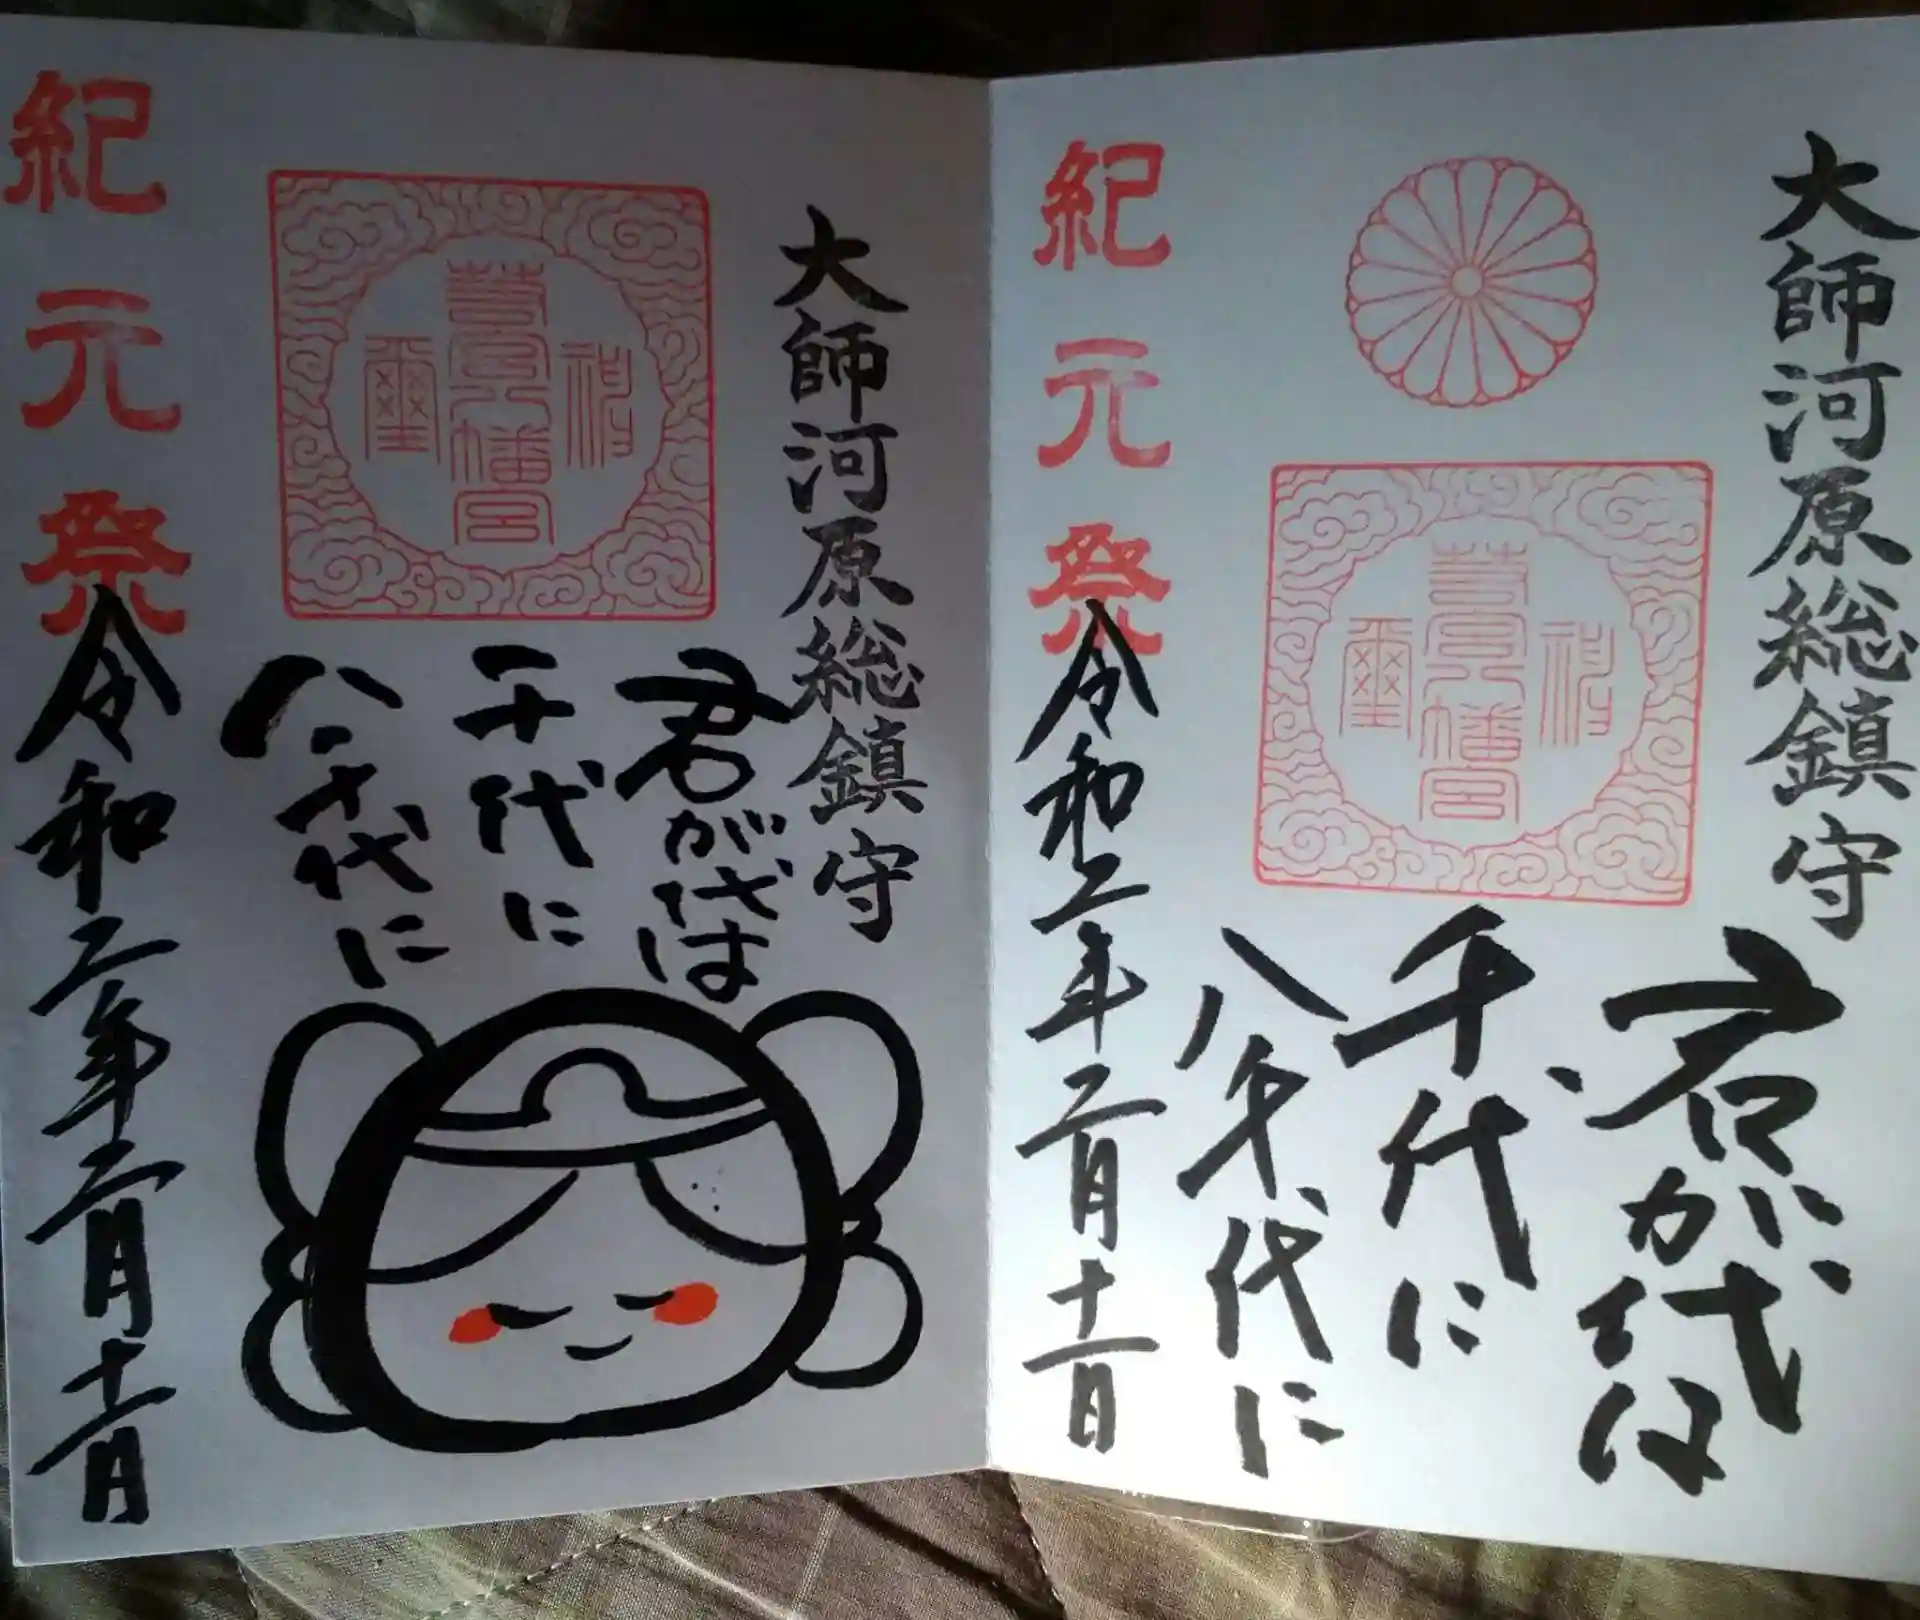 大師河原総鎮守
神
若宮八幡宮
璽
君が代は
千代に
八千代に
紀元祭
令和二年二月十一日
大師河原総鎮守
神
若宮八幡宮
璽
君が代は
千代に
八千代に
紀元祭
令和二年二月十一日